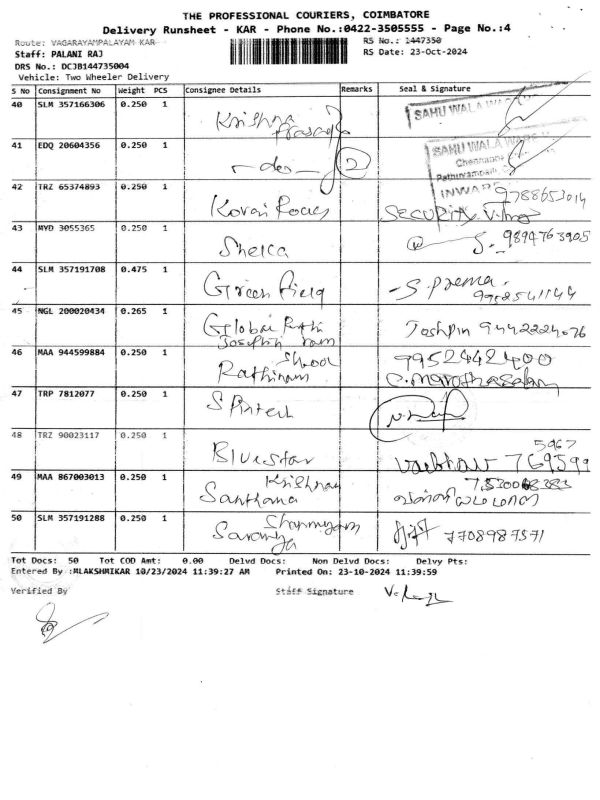 THE PROFESSIONAL COURIERS, COIMBATORE
Delivery Runsheet - KAR - Phone No.:0422-3505555 - Page No.:4
Route: VAGARAYAMPALAYAM KAR
RS No.: 1447350
Staff: PALANI RAJ
RS Date: 23-Oct-2024
DRS No.: DCJB144735004
Vehicle: Two Wheeler Delivery
S No Consignment No Weight PCS Consignee Details Remarks Seal & Signature
40 SLM 357166306 0.250 1 Krishna SAHU WALA
41 EDQ 20604356 0.250 1 - do - 2 SAHU WALA
Chennappa
INWARD
42 TRZ 65374893 0.250 1 Kovai 9788653014
SECURITY
43 MYD 3055365 0.250 1 9894763905
44 SLM 357191708 0.475 1 Green Field S. prema
9952541144
45 NGL 200020434 0.265 1 Global 9442224076
Joseph
46 MAA 944599884 0.250 1 Rathinam 9952442400
47 TRP 7812077 0.250 1
48 TRZ 90023117 0.250 1 Bluestar 5967
769599
49 MAA 867003013 0.250 1 Santhana Krishnan
50 SLM 357191288 0.250 1 Saranya Shanmugam 7708987571
Tot Docs: 50 Tot COD Amt: 0.00 Delvd Docs: Non Delvd Docs: Delvy Pts:
Entered By :MLAKSHMIKAR 10/23/2024 11:39:27 AM Printed On: 23-10-2024 11:39:59
Verified By Staff Signature